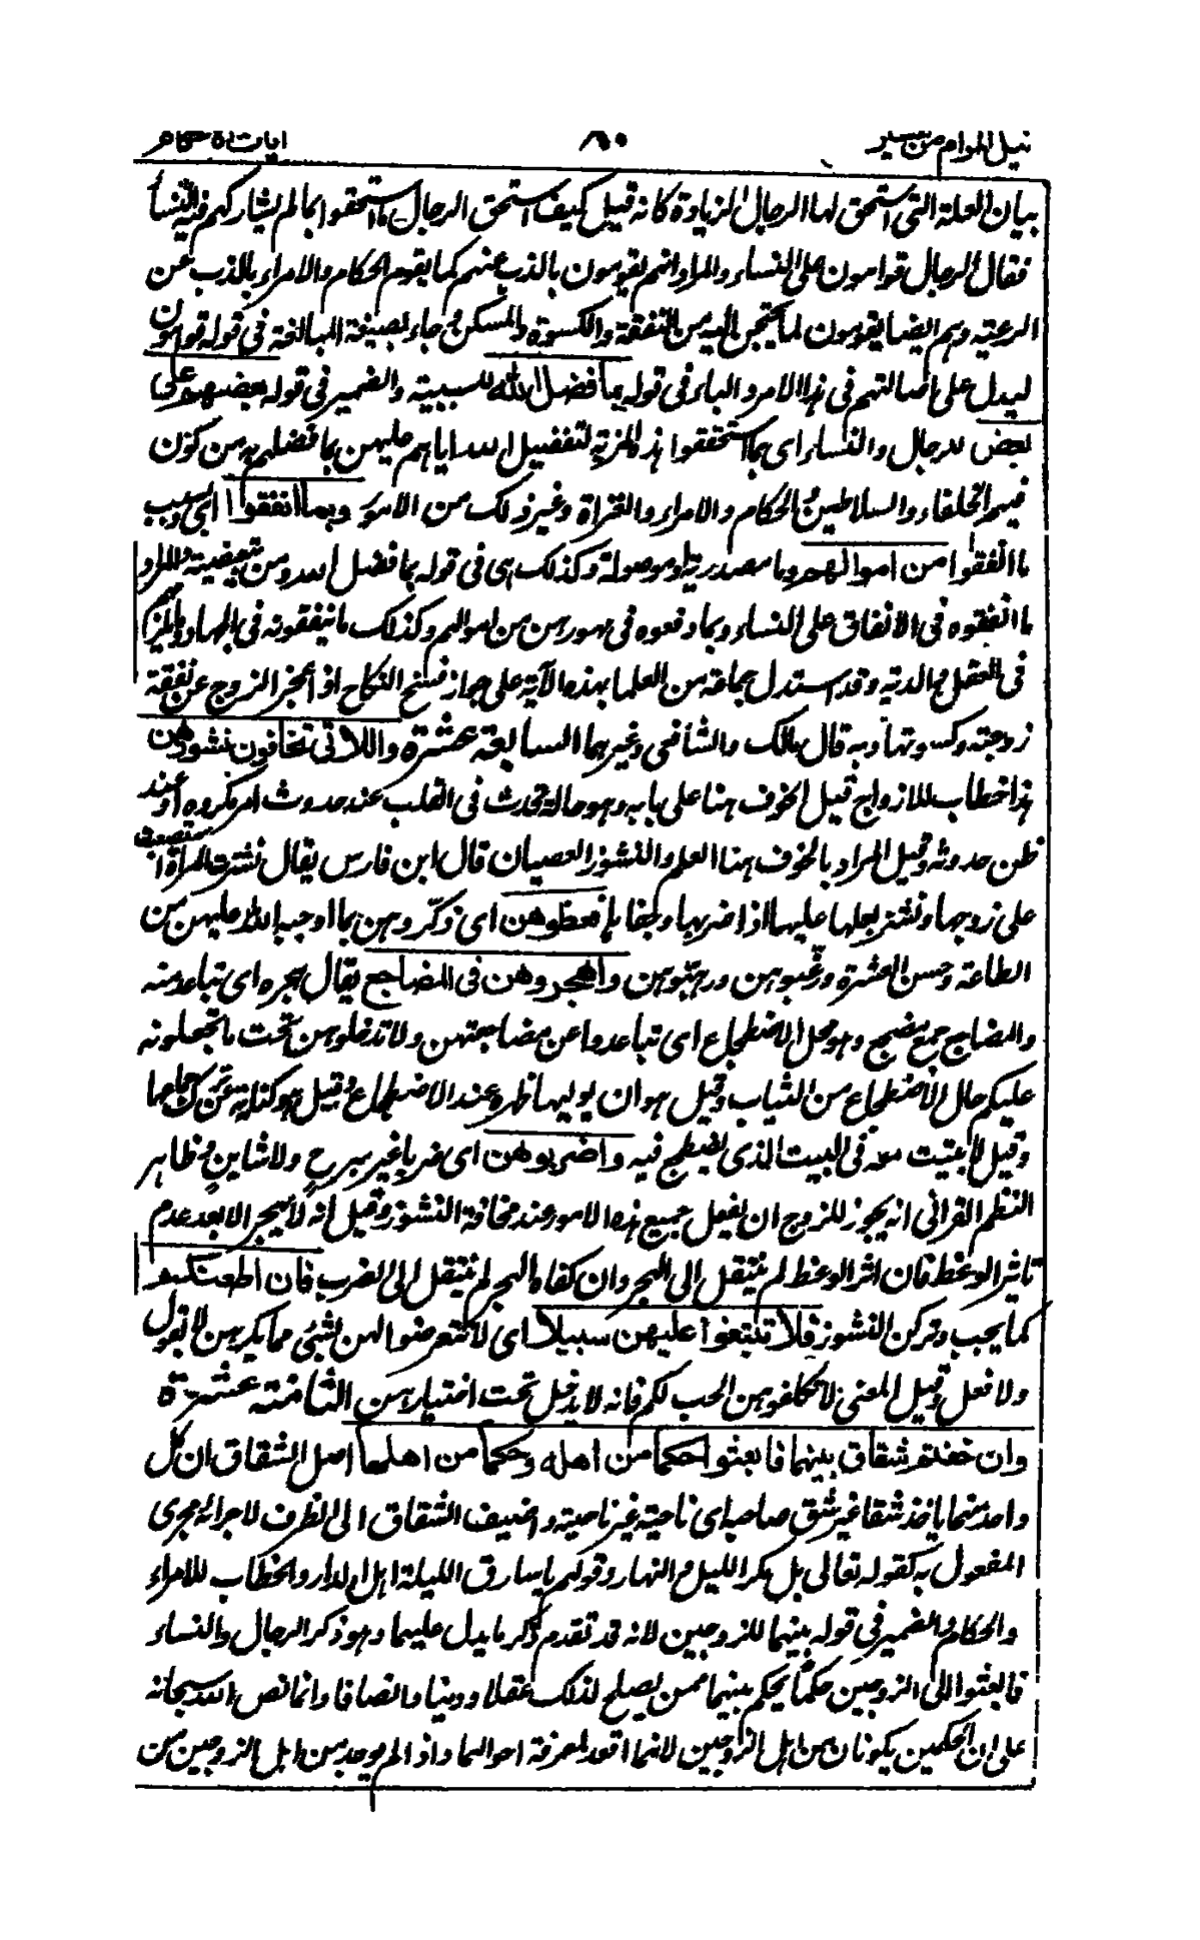 نيل المرام من تفسير ٨٠ ايات الاحكام
بيان العلة التي استحق لها الرجال الزيادة كانه قيل كيف استحق الرجال ما استحقوا بما لم يشاركهم فيه النساء
فقال الرجال قوامون على النساء والمراد انهم يقومون بالذب عنهم كما يقوم الحكام والامراء بالذب عن
الرعية وهم ايضا يقومون لما يحتجن اليه من النفقة والكسوة والمسكن وجاء بصيغة المبالغة في قوله قوامون
ليدل على اصالتهم في هذا الامر والباء في قوله بما فضل الله للسببية والضمير في قوله بعضهم على
بعض للرجال والنساء اى بما استحققوا هذه المزية لتفضيل الله اياهم عليهن بما فضلهم به من كون
فيهم الخلفاء والسلاطين والحكام والامراء والغزاة وغير ذلك من الامور وبما انفقوا اى وبسبب
ما انفقوا من اموالهم وما مصدرية او موصولة وكذلك هى في قوله بما فضل الله ومن تبعيضية والمراد
ما انفقوه في الانفاق على النساء وبما دفعوه في مهورهن من اموالهم وكذلك ما ينفقونه في الجهاد وما يلزمهم
في العقل والدية وقد استدل جماعة من العلما بهذه الآية على جواز فسخ النكاح اذا عجز الزوج عن نفقة
زوجته وكسوتها وبه قال مالك والشافعى وغيرهما السابعة عشرة واللاتى تخافون نشوزهن
هذا خطاب للازواج قيل الخوف هنا على بابه وهو حالة تحدث في القلب عند حدوث امر مكروه او عند
ظن حدوثه وقيل المراد بالخوف هنا العلم والنشوز العصيان قال ابن فارس يقال نشزت المراة استصعبت
على زوجها ونشز بعلها عليها اذا ضربها وجفاها فعظوهن اى ذكّروهن بما اوجبه الله عليهن من
الطاعة وحسن العشرة ورغّبوهن ورهّبوهن واهجروهن في المضاجع يقال هجره اى تباعد منه
والمضاجع جمع مضجع وهو محل الاضطجاع اى تباعدوا عن مضاجعتهن ولا تدخلوهن تحت ما تجعلونه
عليكم حال الاضطجاع من الثياب وقيل هو ان يوليها ظهره عند الاضطجاع وقيل هو كناية عن ترك جماعها
وقيل لا يبيت معه في البيت الذى يضطجع فيه واضربوهن اى ضربا غير مبرحٍ ولا شاينٍ وظاهر
النظم القرانى انه يجوز للزوج ان يفعل جميع هذه الامور عند مخافة النشوز وقيل انه لا يهجر الا بعد عدم
تاثير الوعظ فان اثر الوعظ لم ينتقل الى الهجر وان كفاه الهجر لم ينتقل الى الضرب فان اطعنكم
كما يجب وتركن النشوز فلا تبتغوا عليهن سبيلا اى لا تتعرضوا لهن بشئ مما يكرهن لا بقول
ولا فعل وقيل المعنى لا تكلفوهن الحب لكم فانه لا يدخل تحت اختيارهن الثامنة عشرة
وان خفتم شقاق بينهما فابعثوا حكما من اهله وحكما من اهلها اصل الشقاق ان كل
واحد منهما ياخذ شقا غير شق صاحبه اى ناحية غير ناحيته واضيف الشقاق الى الظرف لاجرائه مجرى
المفعول به كقوله تعالى بل مكر الليل والنهار وقولهم يا سارق الليلة اهل الدار والخطاب للامراء
والحكام والضمير في قوله بينهما للزوجين لانه قد تقدم ذكر ما يدل عليهما وهو ذكر الرجال والنساء
فابعثوا الى الزوجين حكمًا يحكم بينهما ممن يصلح لذلك عقلا ودينا وانصافا وانما نص الله سبحانه
على ان الحكمين يكونان من اهل الزوجين لانهما اقعد بمعرفة احوالهما واذا لم يوجد من اهل الزوجين من